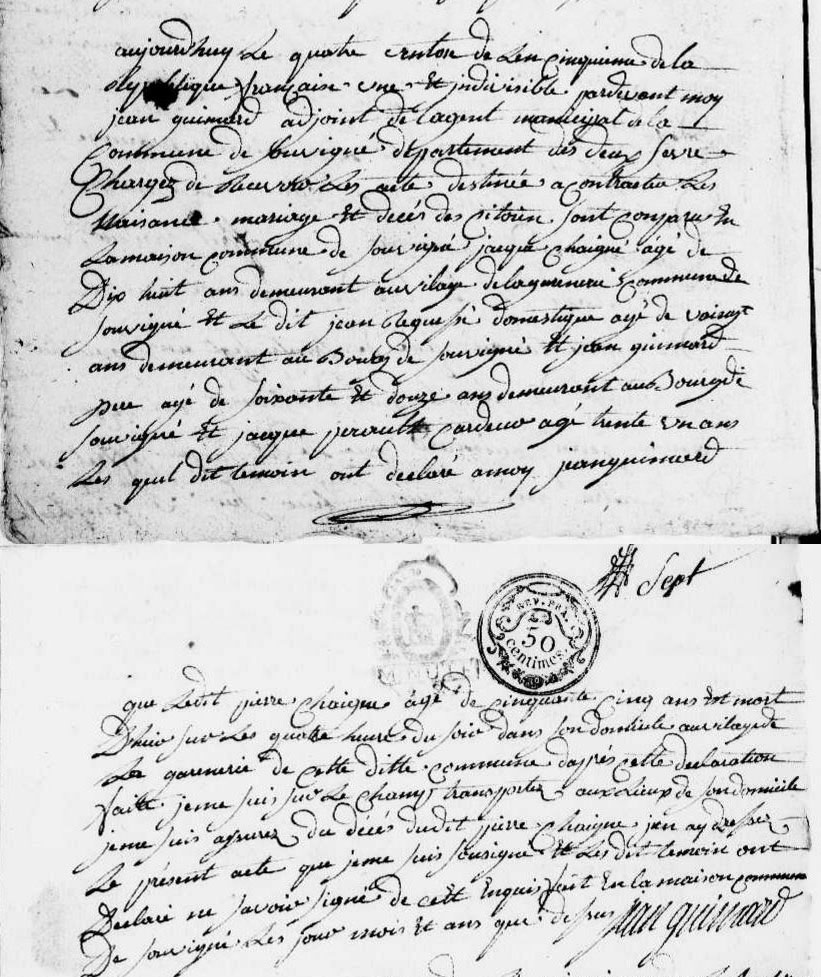 aujourdhuy Le quatre de Len cinquieme de la
Republique francaise une Et indivisible pardevant moy
jean guimard adjoint de l'agent municipal de la
Commune de Souvigné département des deux Sevre
Chargez de Recevoir Les acte destinée a Contracter Les
Naisance mariage Et décés des Citoien sont Conparu En
La maison commune de Souvigné jacque Chaigné agé de
Dix huit ans demeurant au vilage de la garnerie Commune de
Souvigné Et Le dit jean domestique agé de vaingt
ans demeurant au Bourg de Souvigné Et jean guimard
pere agé de soixante Et douze ans demeurant au Bourg de
Souvigné Et jacque cardeur agé trente un ans
Les quel dit temoin ont declaré a moy jean guimard
Sept
REP. FRA.
50
centimes
que Ledit pierre Chaigne agé de cinquante cinq ans Est mort
D'hier sur Les quatre heure du soir dans son domicile au vilage de
La garenerie de Cette ditte Commune daprés Cette declaration
faitte jeme suis sur Le Champ transportez aux Lieux de son domicile
jeme suis assurez du décés dudit pierre Chaigne jen ay dressez
Le présent acte que jeme suis sousigné Et Les dit temoin ont
Declaré ne savoir signé de cett Enquis fait En la maison commune
De Souvigné Les jour mois Et ans que dessus jean guimard